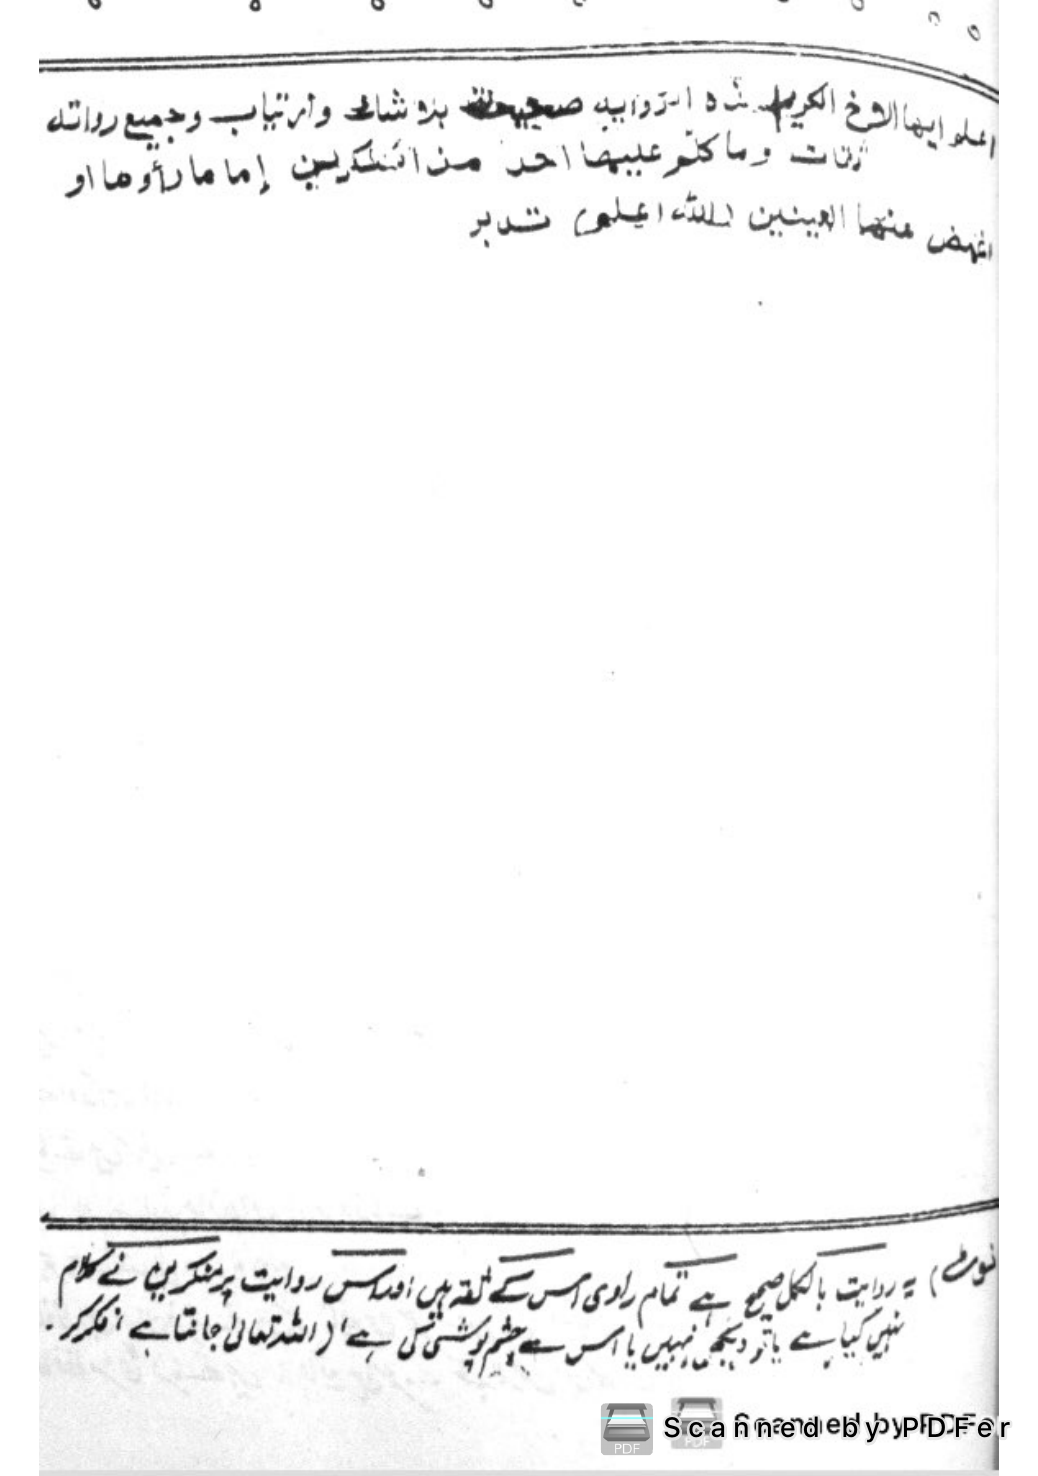 اعلم ايها الشيخ الكريم هذه الروايه صحيحة بلا شك وارتياب وجميع رواته
ثقات وما كلّم عليها احد من المنكرين إما ما رأوها او
اغمض عنها العينين (الله اعلم) تدبر
نوٹ) یہ روایت بالکل صحیح ہے تمام راوی اس کے ثقہ ہیں اور اس روایت پر منکرین نے کلام
نہیں کیا ہے یا تو دیکھی نہیں یا اس سے چشم پوشی کی ہے (اللہ تعالیٰ جانتا ہے) فکر کر.
Scanned by PDFer
Scanned by PDFer
PDF
PDF